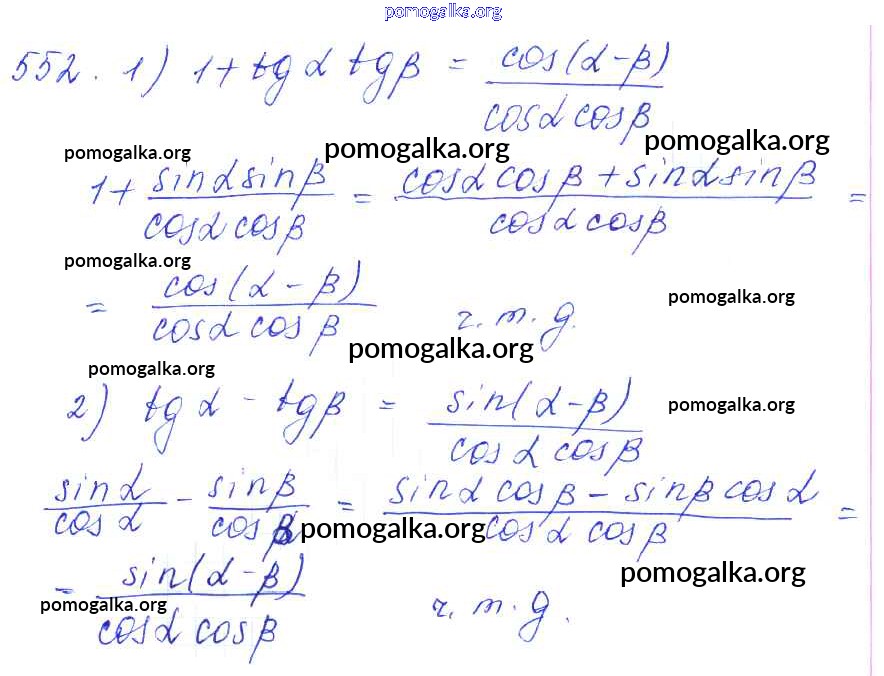 pomogalka.org
552. 1) 1 + tg α tg β = cos(α - β) / cos α cos β
pomogalka.org pomogalka.org pomogalka.org
1 + sin α sin β / cos α cos β = cos α cos β + sin α sin β / cos α cos β =
pomogalka.org
= cos(α - β) / cos α cos β ч. т. д.
pomogalka.org
pomogalka.org
pomogalka.org
2) tg α - tg β = sin(α - β) / cos α cos β
pomogalka.org
sin α / cos α - sin β / cos β = sin α cos β - sin β cos α / cos α cos β =
pomogalka.org
= sin(α - β) / cos α cos β ч. т. д.
pomogalka.org
pomogalka.org